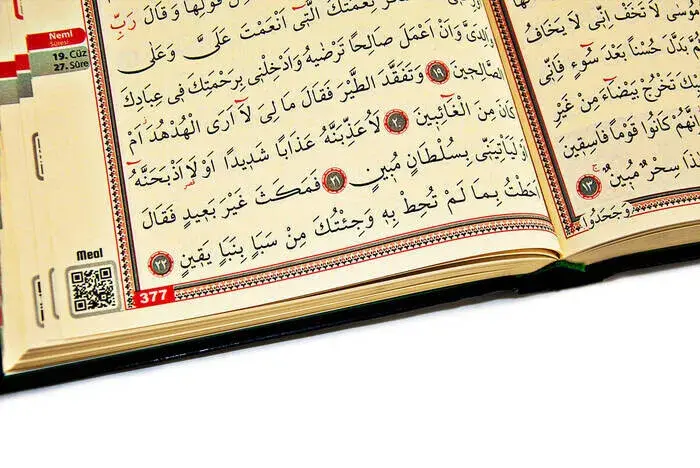 قَوْلِهَا وَقَالَ رَبِّ
نِعْمَتَكَ الَّتٖٓى اَنْعَمْتَ عَلَىَّ وَعَلٰى
وَالِدَىَّ وَاَنْ اَعْمَلَ صَالِحًا تَرْضٰيهُ وَاَدْخِلْنٖى بِرَحْمَتِكَ فٖى عِبَادِكَ
الصَّالِحٖينَ ١٩ وَتَفَقَّدَ الطَّيْرَ فَقَالَ مَا لِىَ لَٓا اَرَى الْهُدْهُدَ اَمْ
كَانَ مِنَ الْغَٓائِبٖينَ ٢٠ لَاُعَذِّبَنَّهُ عَذَابًا شَدٖيدًا اَوْ لَا۬اَذْبَحَنَّهُٓ
اَوْ لَيَاْتِيَنّٖى بِسُلْطَانٍ مُبٖينٍ ٢١ فَمَكَثَ غَيْرَ بَعٖيدٍ فَقَالَ
اَحَطْتُ بِمَا لَمْ تُحِطْ بِهٖ وَجِئْتُكَ مِنْ سَبَاٍ بِنَبَاٍ يَقٖينٍ ٢٢
Neml
Sûresi
19. Cüz
27. Sûre
Meal
377
لَا تَخَفْ اِنّٖى لَا يَخَافُ
بَدَّلَ حُسْنًا بَعْدَ سُٓوءٍ فَاِنّٖى
تَخْرُجْ بَيْضَٓاءَ مِنْ غَيْرِ
اِنَّهُمْ كَانُوا قَوْمًا فَاسِقٖينَ
هٰذَا سِحْرٌ مُبٖينٌ ١٣
وَجَحَدُوا